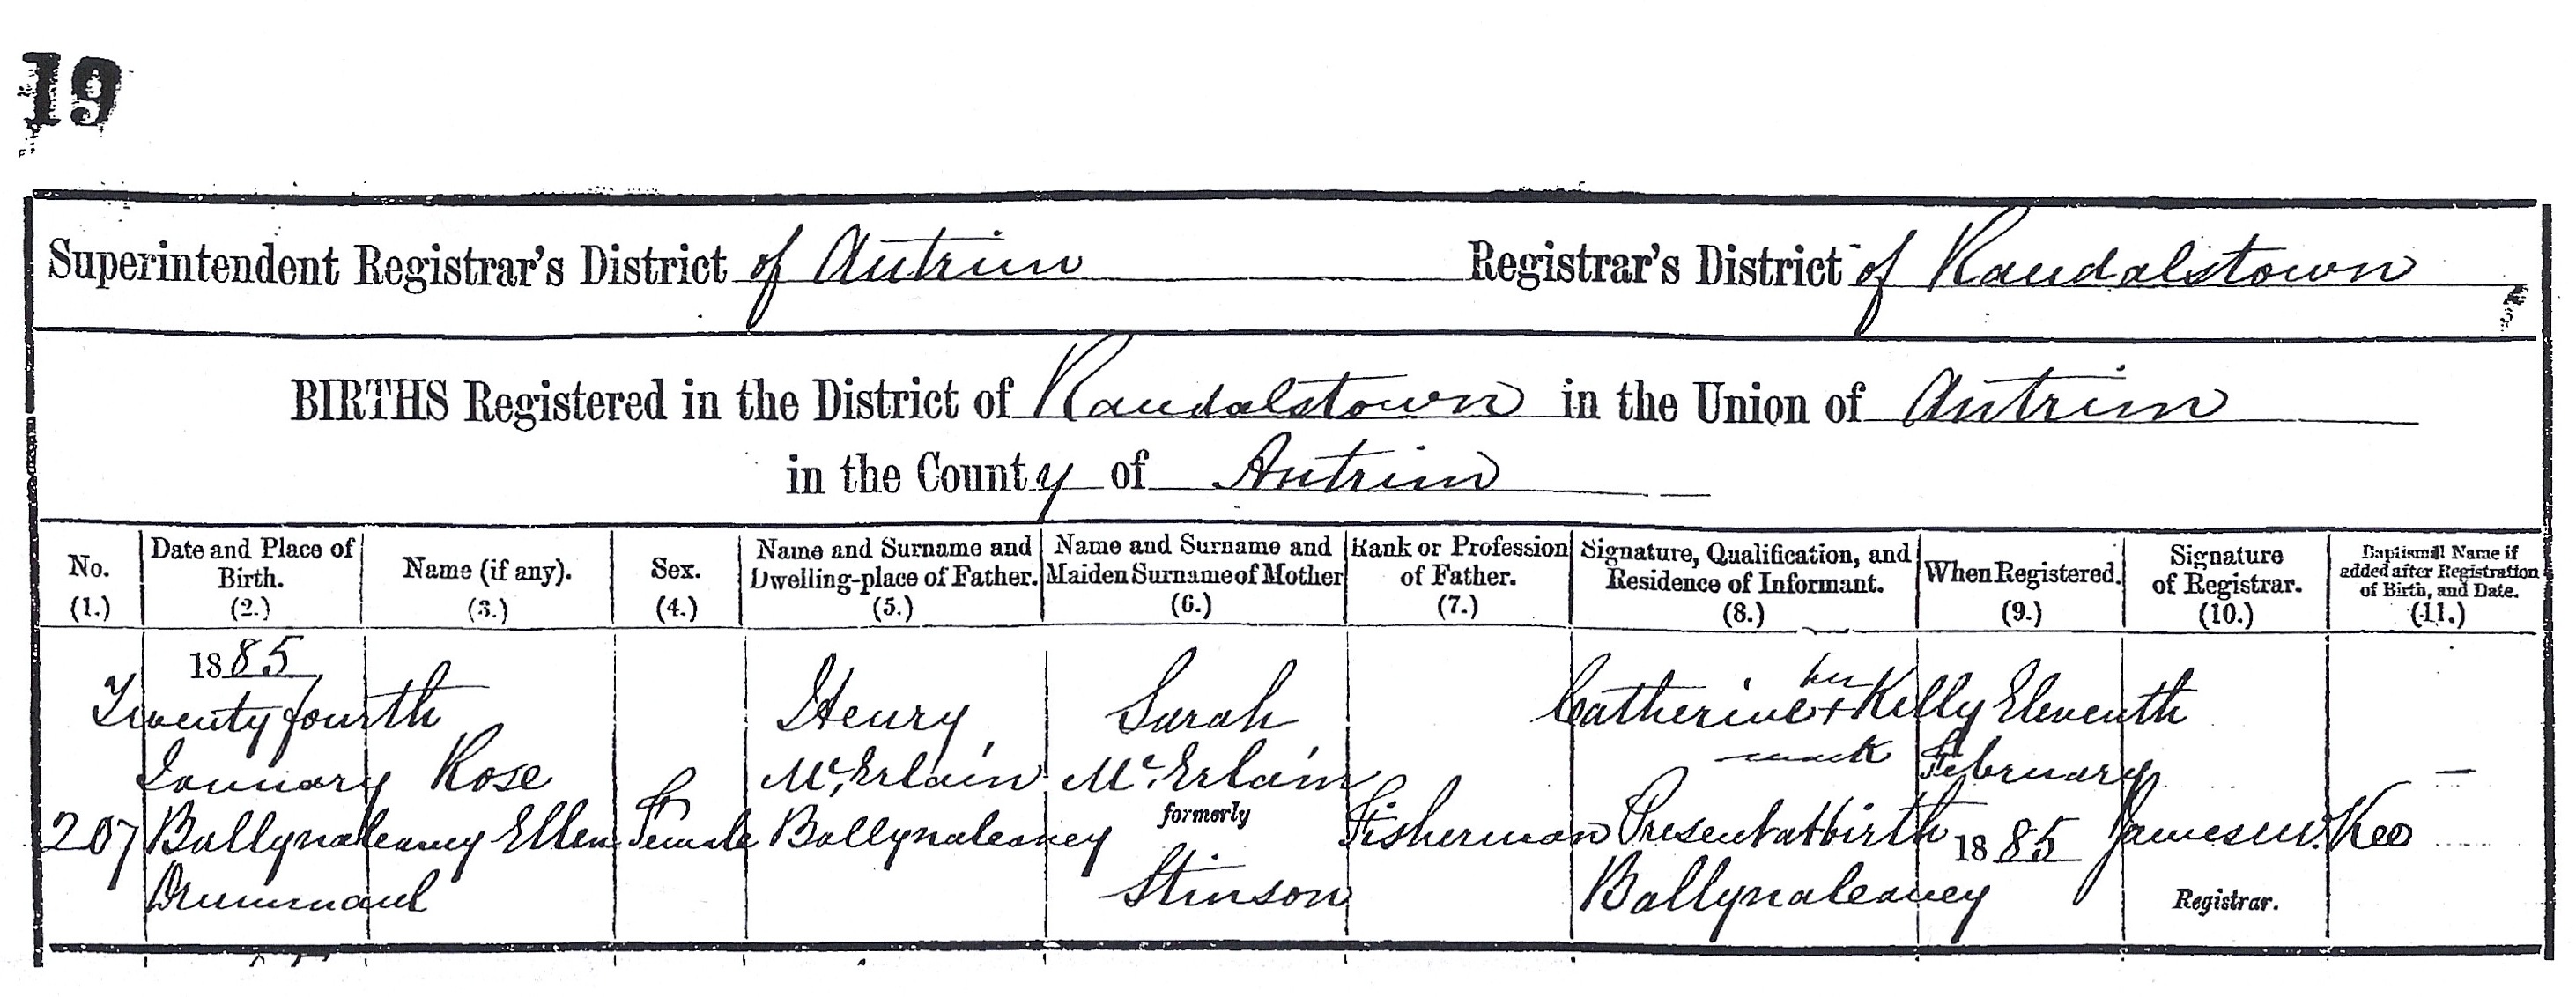 19
Superintendent Registrar's District of Antrim Registrar's District of Randalstown
BIRTHS Registered in the District of Randalstown in the Union of Antrim
in the County of Antrim
No. (1.)
Date and Place of Birth. (2.)
Name (if any). (3.)
Sex. (4.)
Name and Surname and Dwelling-place of Father. (5.)
Name and Surname and Maiden Surname of Mother (6.)
Rank or Profession of Father. (7.)
Signature, Qualification, and Residence of Informant. (8.)
When Registered. (9.)
Signature of Registrar. (10.)
Baptismal Name if added after Registration of Birth, and Date. (11.)
207
1885
Twenty fourth
January
Ballynaleaney
Drummaul
Rose
Ellen
Female
Henry
McErlain
Ballynaleaney
Sarah
McErlain
formerly
Stinson
Fisherman
her
Catherine + Kelly
mark
Present at birth
Ballynaleaney
Eleventh
February
1885
James W. Kee
Registrar.
—